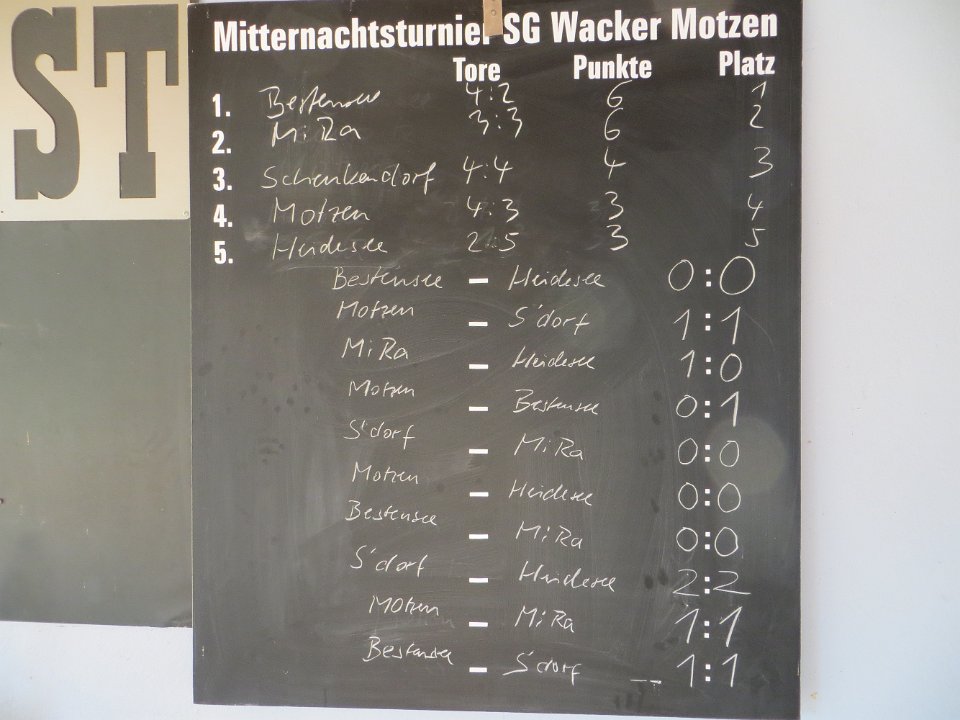 ST
Mitternachtsturnier SG Wacker Motzen
Tore Punkte Platz
1. Bestensee 4:2 6 1
2. MiRa 3:3 6 2
3. Schenkendorf 4:4 4 3
4. Motzen 4:3 3 4
5. Heidesee 2:5 3 5
Bestensee - Heidesee 0:0
Motzen - S'dorf 1:1
MiRa - Heidesee 1:0
Motzen - Bestensee 0:1
S'dorf - MiRa 0:0
Motzen - Heidesee 0:0
Bestensee - MiRa 0:0
S'dorf - Heidesee 2:2
Motzen - MiRa 1:1
Bestensee - S'dorf 1:1